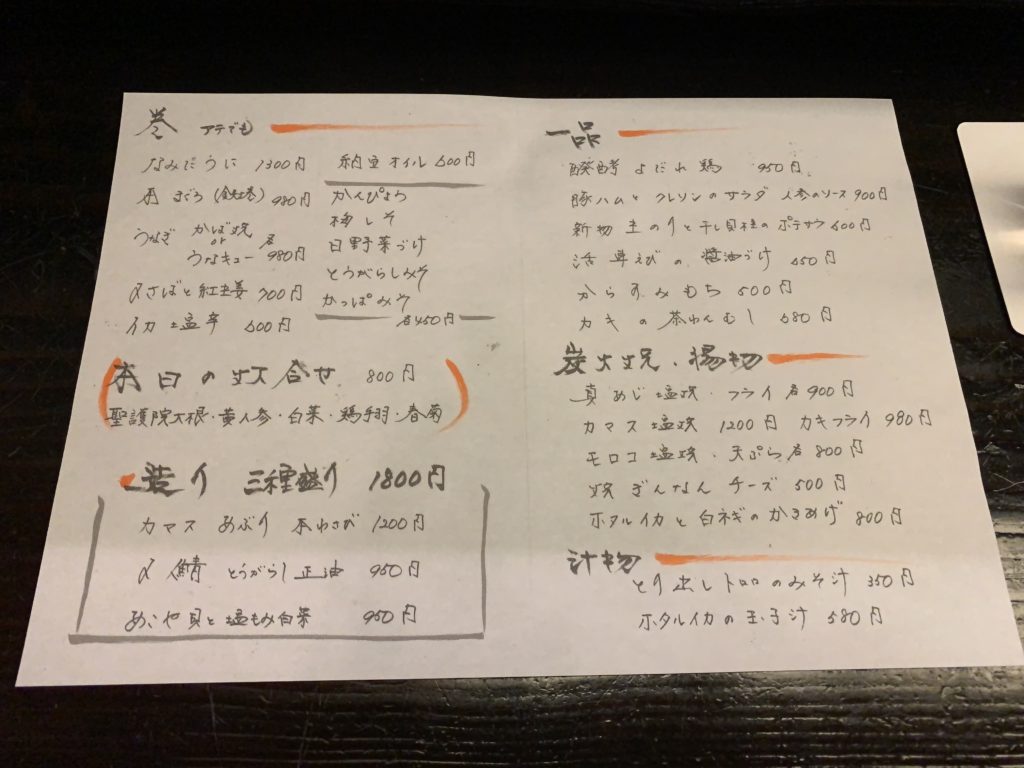 巻 アテでも
なみだうに 1300円
本まぐろ(鉄火巻) 980円
うなぎ かば焼 or うなキュー 各980円
〆さばと紅生姜 700円
イカ塩辛 600円
納豆オイル 600円
かんぴょう
梅しそ
日野菜づけ
とうがらしみそ
かっぱみそ
各450円
本日の炊合せ 800円
聖護院大根・黄人参・白菜・鶏手羽・春菊
造り 三種盛り 1800円
カマス あぶり 本わさび 1200円
〆鯖 とうがらし正油 950円
あこや貝と塩もみ白菜 950円
一品
醗酵よだれ鶏 950円
豚ハムとクレソンのサラダ 人参のソース 900円
新物生のりと干し貝柱のポテサラ 600円
活車えびの醤油づけ 650円
からすみもち 500円
カキの茶わんむし 680円
炭火焼・揚物
真あじ塩焼・フライ 各900円
カマス塩焼 1200円 カキフライ 980円
モロコ塩焼・天ぷら 各800円
焼ぎんなんチーズ 500円
ホタルイカと白ネギのかきあげ 800円
汁物
とり出しトロロのみそ汁 350円
ホタルイカの玉子汁 580円